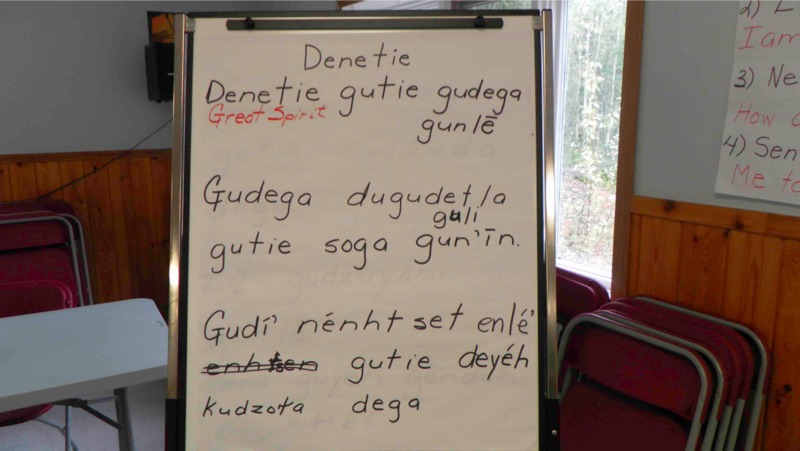 Denetie
Denetie gutie gudega
Great Spirit
gunlē
Gudega dugudetła
guli
gutie soga gun'īn.
Gudí' nénht set enlé'
enhtsen gutie deyéh
kudzota dega
2) L
I am
3) Ne
How
4) Sen
Me to